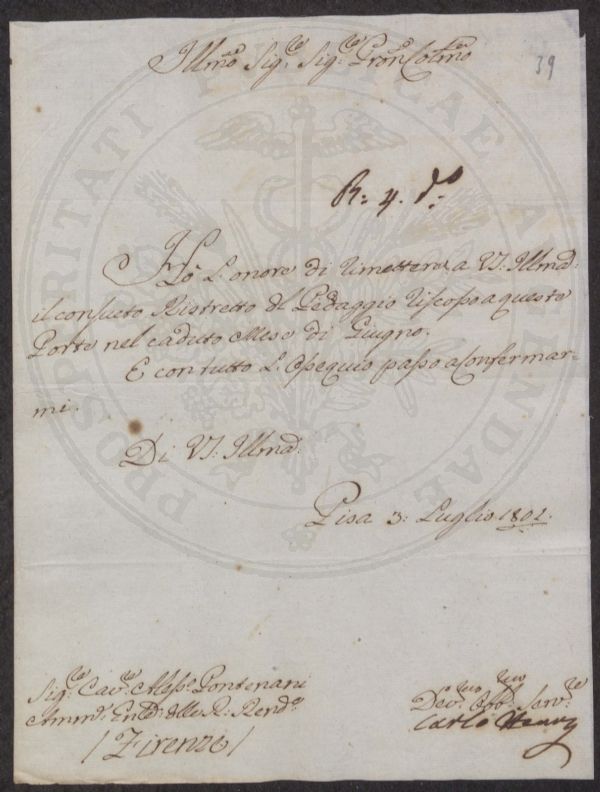 Illmo Sigre Sigre Pron Colmo
39
R: 4. do:
Hò L'onore di rimettere a VS: Illma:
il consueto Ristretto del Pedaggio riscosso a queste
Porte nel caduto Mese di Giugno.
E con tutto L'Ossequio passo a Confermar=
mi.
Di VS: Illma:
Pisa 3: Luglio 1801.
Sigre Cavre Alesso Pontenani
Ammre Delle R. Rendte
/Firenze/
Devmo Obbmo Servre
Carlo
PROSPERITATI PUBLICAE AUGENDAE